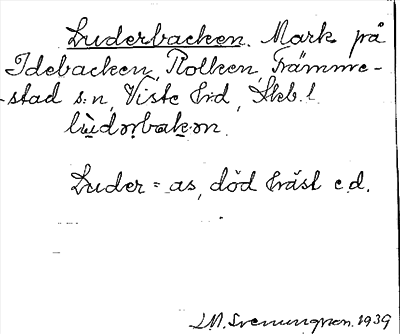 Luderbacken. Mark på
Idebacken, Rolken, Främme-
-stad s:n, Viste h:d, Skb.l.
lùdərbakən.
Luder = as, död häst e.d.
J.M. Svenungson. 1939